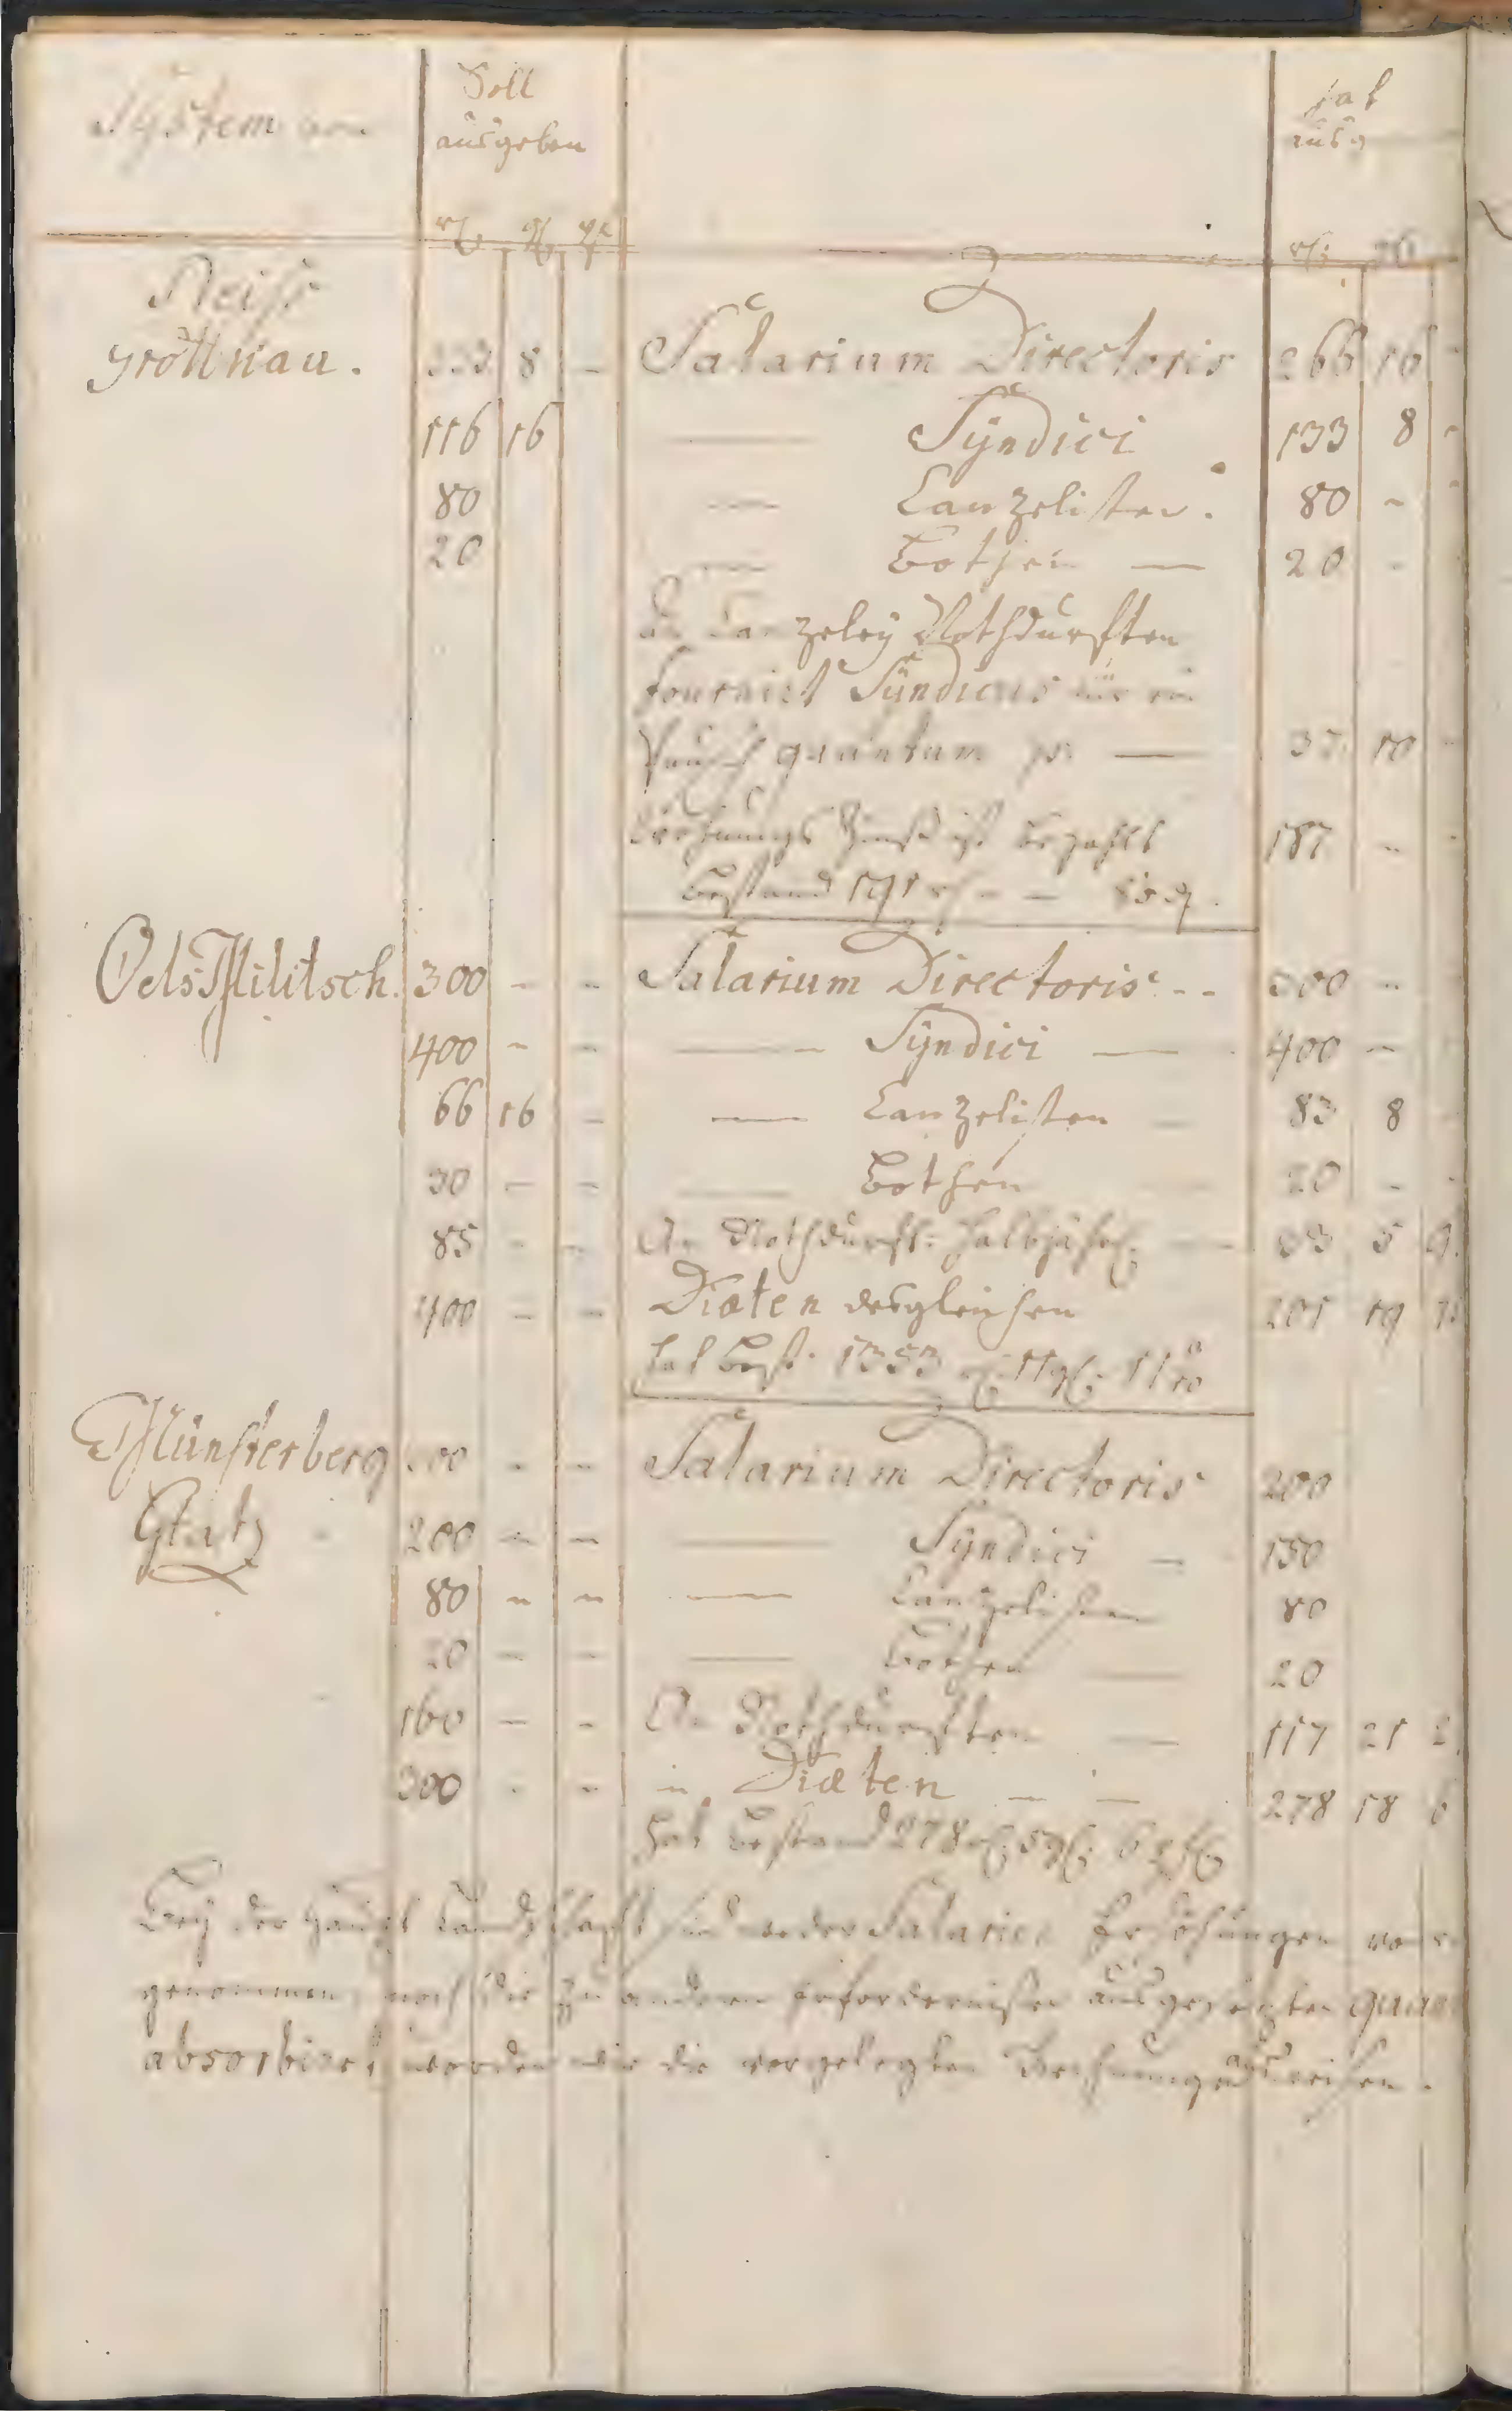 System von
Soll
ausgeben
hat
ausg
rh. gl. pf.
rh.
Neiss
Grottkau. 233 8 – Salarium Directoris 266 16
116 16 — Syndici 133 8 -
80 — Canzelisten. 80 -
20 — Bothen — 20 -
An Canzeley Nothdurften
fournirt Syndicus für ein
Pausch quantum p. — 37 10
Wohnungs Zinß ist bezahlt 187 -
Bestand 191 rh – –
Oels Militsch. 300 - - Salarium Directoris - - 300 -
400 - - — Syndici — 400 -
66 16 - — Canzelisten 83 8
30 - - — Bothen 20 -
85 - - An Nothdurft: halbjährl: — 33 5 9
400 - - Diæten desgleichen 201 19
hat Best. 1353 rh: 11 gl:
Münsterberg 200 - - Salarium Directoris 200
Glatz 200 - - — Syndici — 150
80 - - — Canzelisten 80
20 - - — Bothen — 20
160 - - An Nothdurften — 117 21 2
300 - - in Diæten — — 278 18 6
hat Bestand 278 rh: 5 gl: 6 pf:
Bey der Haupt Landschafft sind weder Salarien Erhöhungen vor
genommen, noch die zu anderen Erfordernißen ausgesetzten quan
absorbiret worden wie die vorgelegten Rechnungen ausweisen.